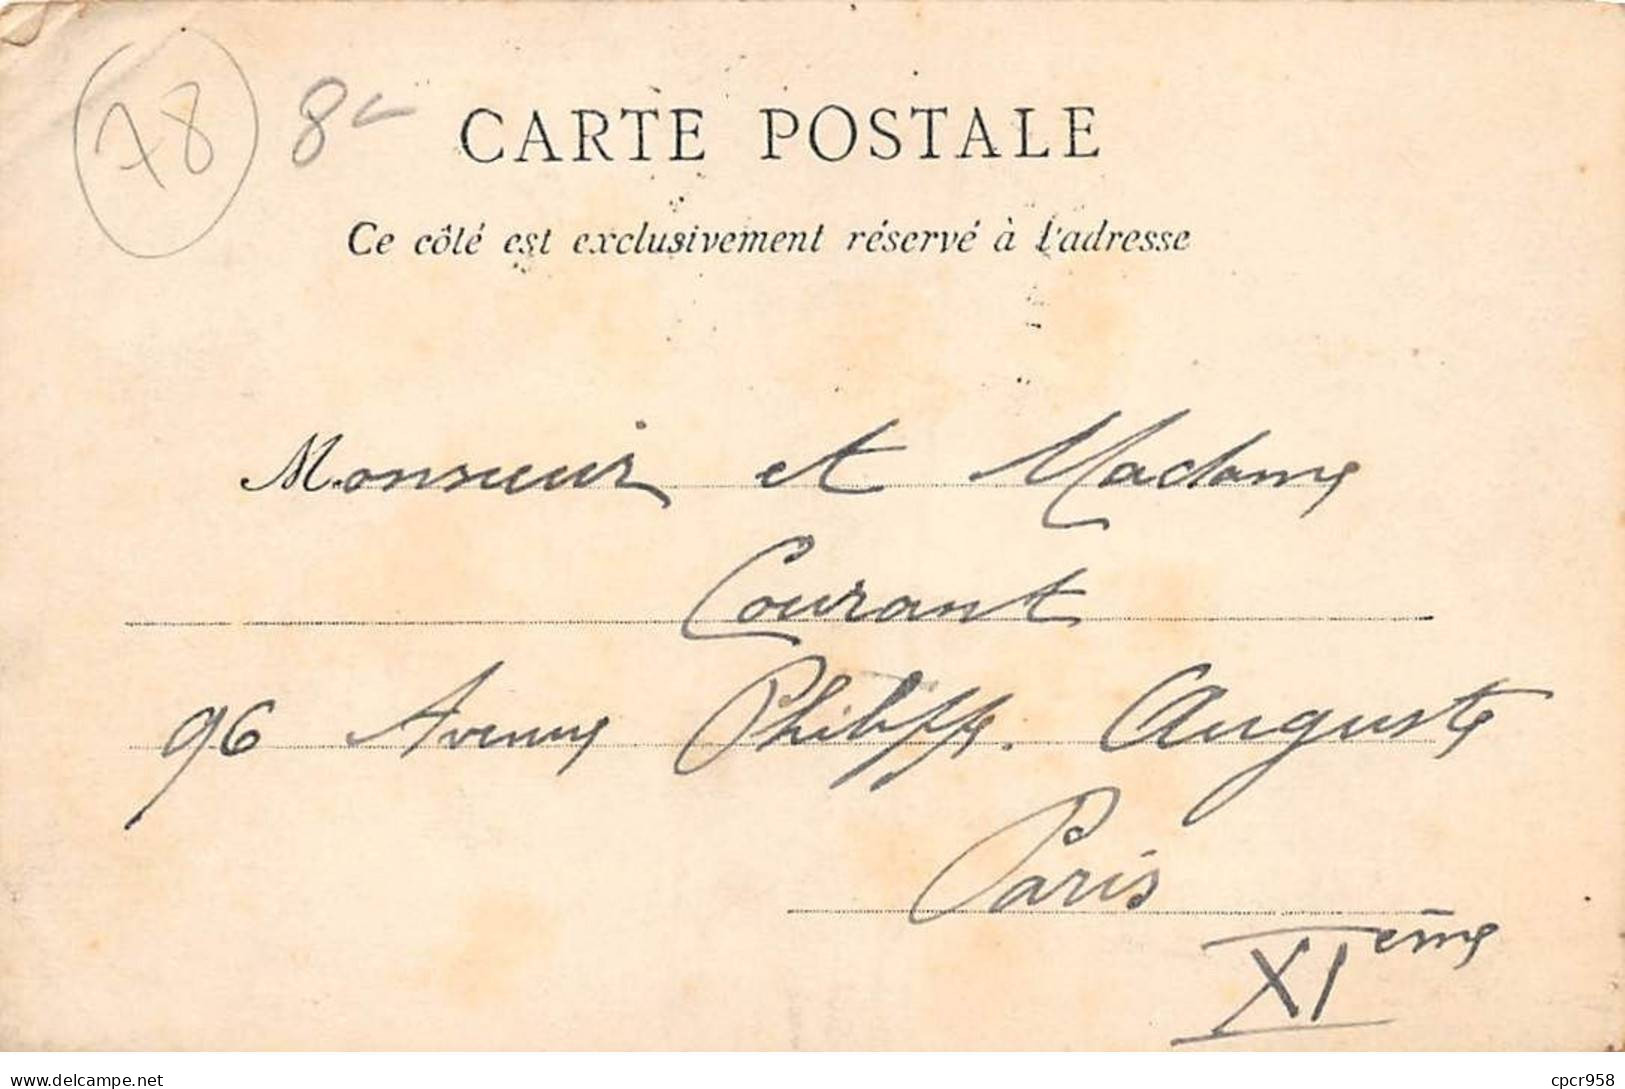 78 8-
CARTE POSTALE
Ce côté est exclusivement réservé à l'adresse
Monsieur et Madame
Courant
96 Avenue Philippe. Auguste
Paris
XIème
delcampe.net
cpcr958